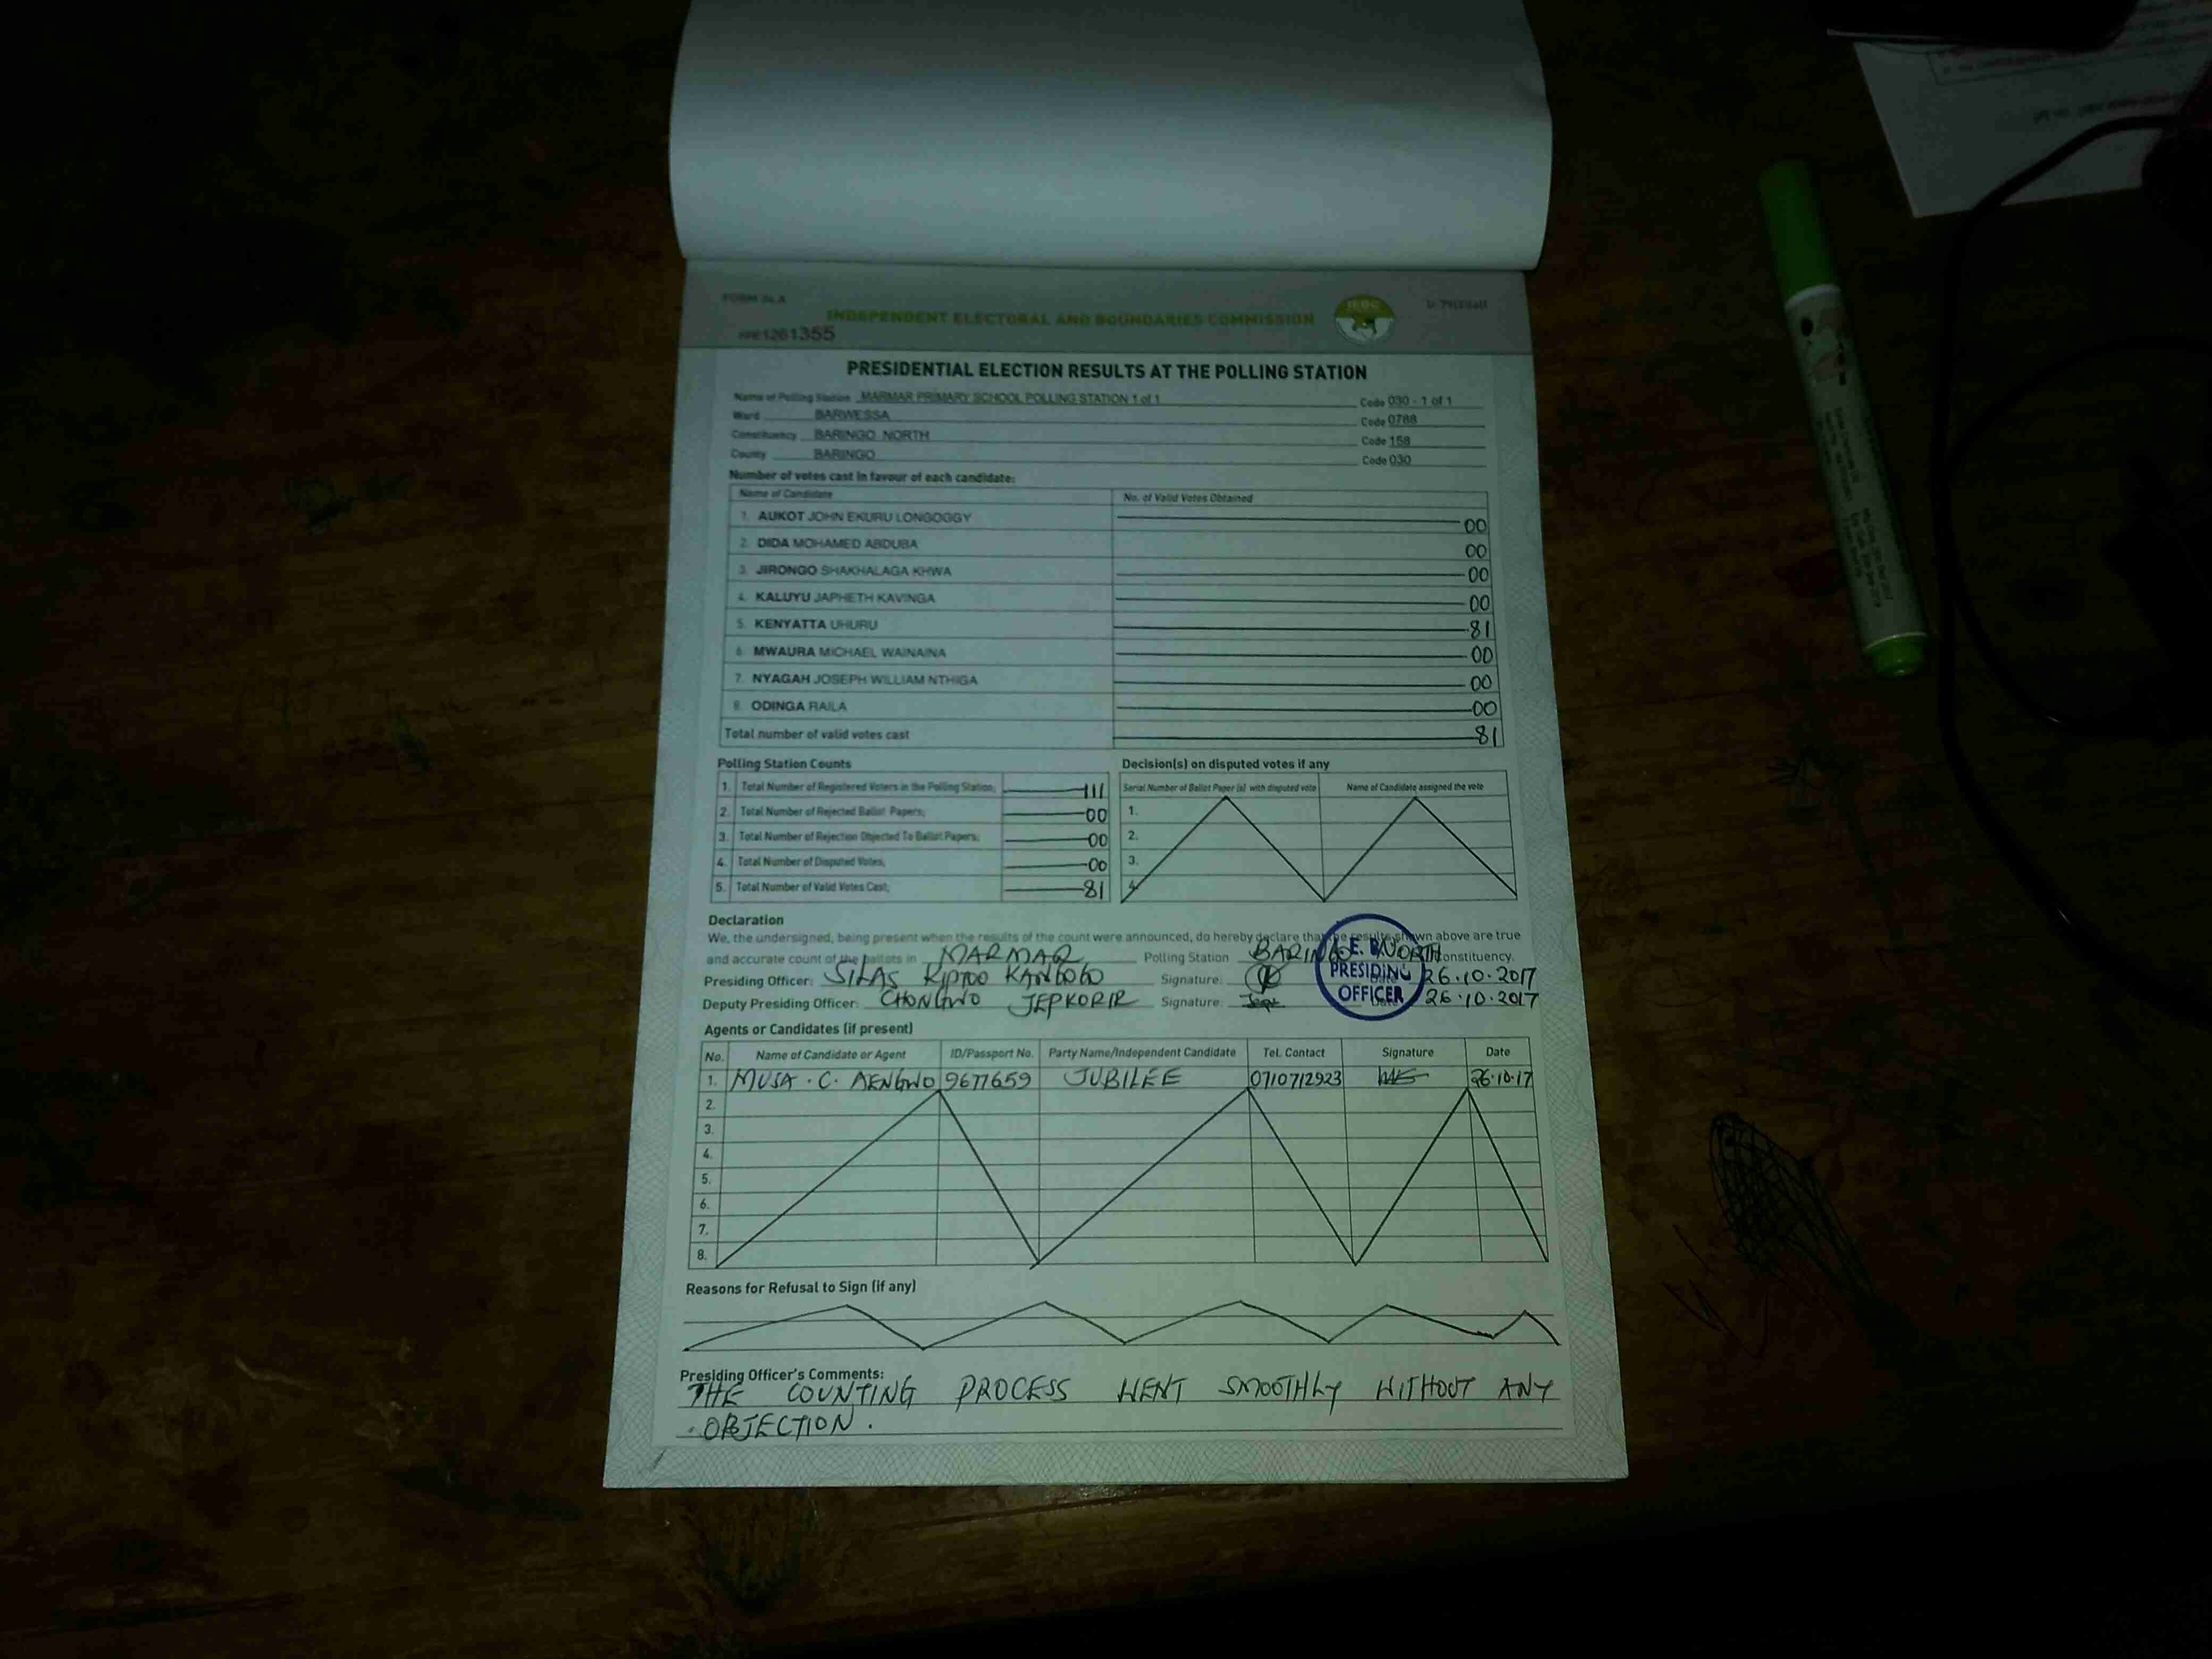 FORM 34 A
INDEPENDENT ELECTORAL AND BOUNDARIES COMMISSION
IEBC
1261355
PRESIDENTIAL ELECTION RESULTS AT THE POLLING STATION
Name of Polling Station MARMAR PRIMARY SCHOOL POLLING STATION 1 of 1 Code 030 - 1 of 1
Ward BARWESSA Code 0788
Constituency BARINGO NORTH Code 158
County BARINGO Code 030
Number of votes cast in favour of each candidate:
Name of Candidate No. of Valid Votes Obtained
1. AUKOT JOHN EKURU LONGOGGY 00
2. DIDA MOHAMED ABDUBA 00
3. JIRONGO SHAKHALAGA KHWA 00
4. KALUYU JAPHETH KAVINGA 00
5. KENYATTA UHURU 81
6. MWAURA MICHAEL WAINAINA 00
7. NYAGAH JOSEPH WILLIAM NTHIGA 00
8. ODINGA RAILA 00
Total number of valid votes cast 81
Polling Station Counts
1. Total Number of Registered Voters in the Polling Station; 111
2. Total Number of Rejected Ballot Papers; 00
3. Total Number of Rejection Objected To Ballot Papers; 00
4. Total Number of Disputed Votes; 00
5. Total Number of Valid Votes Cast; 81
Decision(s) on disputed votes if any
Serial Number of Ballot Paper (s) with disputed vote Name of Candidate assigned the vote
1.
2.
3.
4.
Declaration
We, the undersigned, being present when the results of the count were announced, do hereby declare that the results shown above are true
and accurate count of the ballots in MARMAR Polling Station BARINGO NORTH Constituency.
Presiding Officer: SILAS KIPTOO KANGOGO Signature: Date 26.10.2017
Deputy Presiding Officer: CHONGWO JEPKORIR Signature: Date 26.10.2017
PRESIDING
OFFICER
Agents or Candidates (if present)
No. Name of Candidate or Agent ID/Passport No. Party Name/Independent Candidate Tel. Contact Signature Date
1. MUSA . C. AENGWO 9677659 JUBILEE 0710712923 26.10.17
2.
3.
4.
5.
6.
7.
8.
Reasons for Refusal to Sign (if any)
Presiding Officer's Comments:
THE COUNTING PROCESS WENT SMOOTHLY WITHOUT ANY
OBJECTION.